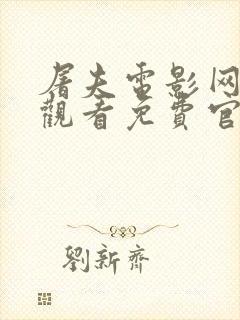 屠夫電影网
觀看免費官
劉新齊